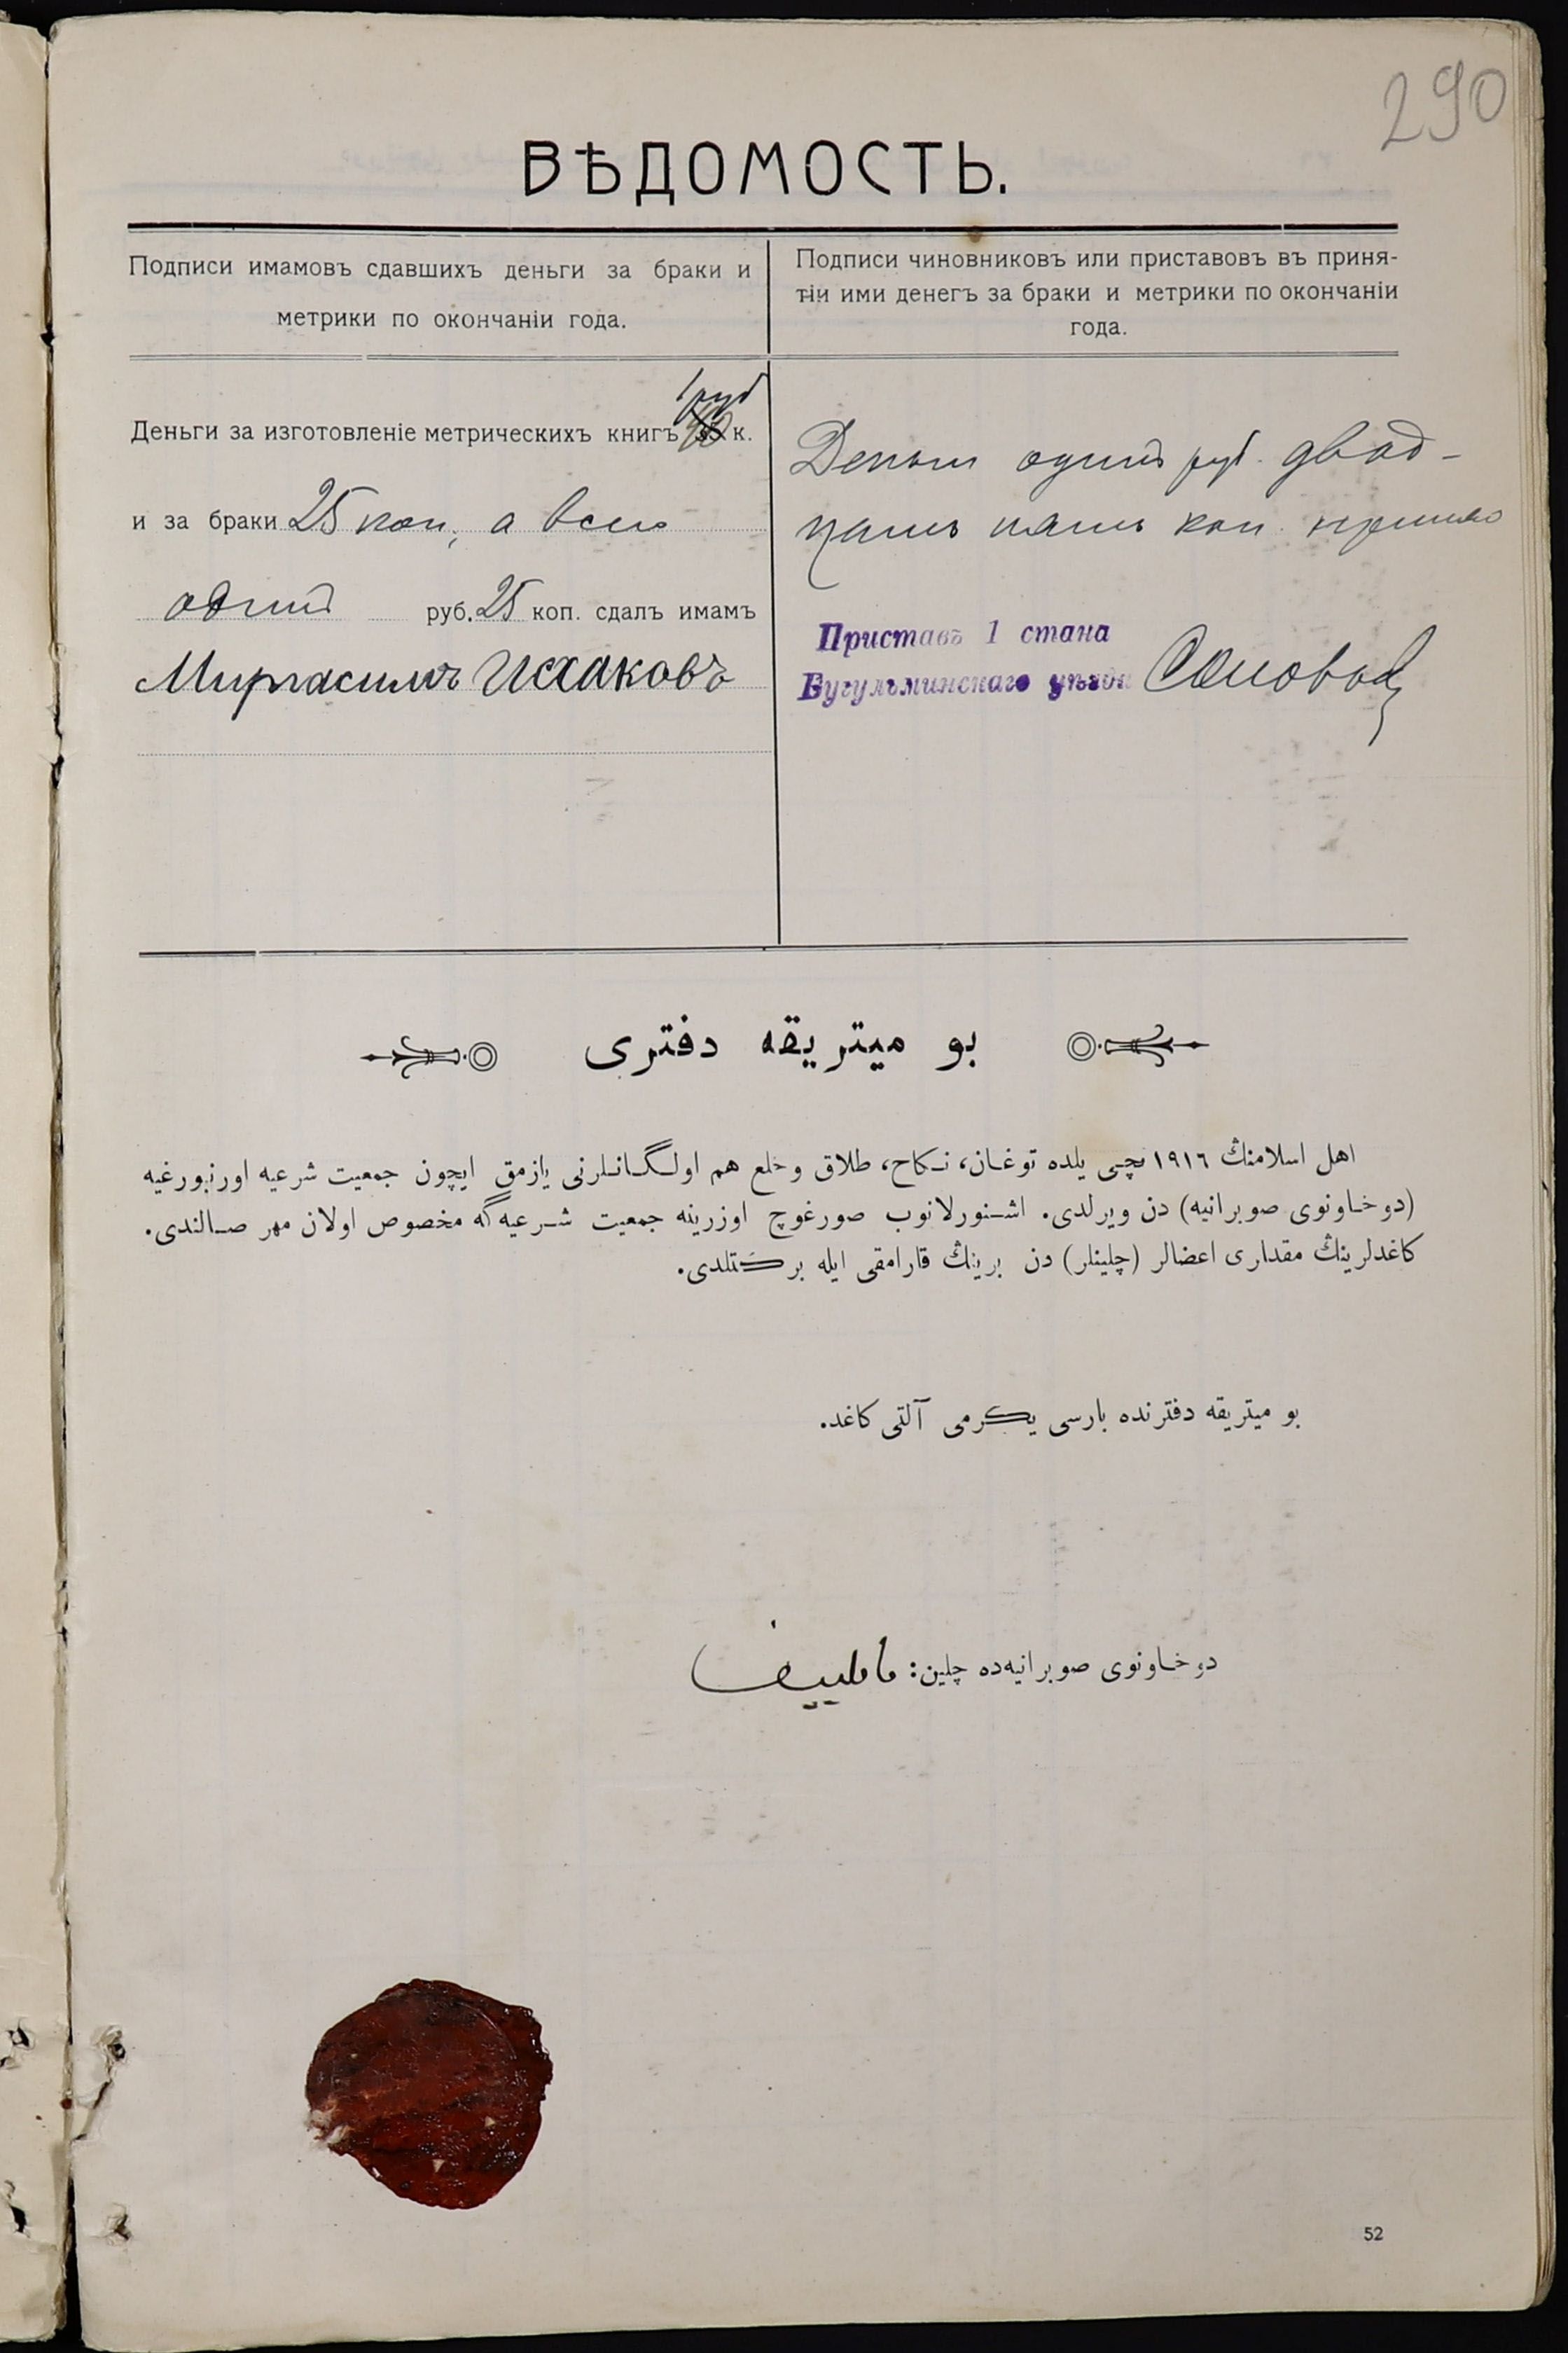 290
ВѢДОМОСТЬ.
Подписи имамовъ сдавшихъ деньги за браки и
метрики по окончаніи года.
Подписи чиновниковъ или приставовъ въ приня-
тіи ими денегъ за браки и метрики по окончаніи
года.
1 руб
Деньги за изготовленіе метрическихъ книгъ к.
и за браки 25 коп, а всего
один руб. 25 коп. сдалъ имамъ
Миргасимъ Исхаковъ
Деньги один руб. двад-
цать пять коп. принялъ
Приставъ 1 стана
Бугульминскаго уѣзда
بو ميتريقه دفترى
اهل اسلامنڭ ١٩١٦ نچـى يلده توغـان، نـكاح، طلاق وخلع هم اولـگـانـلرنى يازمق ايچون جمعيت شرعيه اورنبورغيه
(دوخـاونوى صوبرانيه) دن ويرلدى. اشـنورلانوب صورغوچ اوزرينه جمعيت شـرعيه گه مخصوص اولان مهر صـالندى.
كاغدلرينڭ مقدارى اعضالر (چلينلر) دن برينڭ قارامقى ايله بركـتلدى.
بو ميتريقه دفترنده بارسى يـكرمى آلتى كاغد.
دوخـاونوى صوبرانيه‌ده چلين:
52